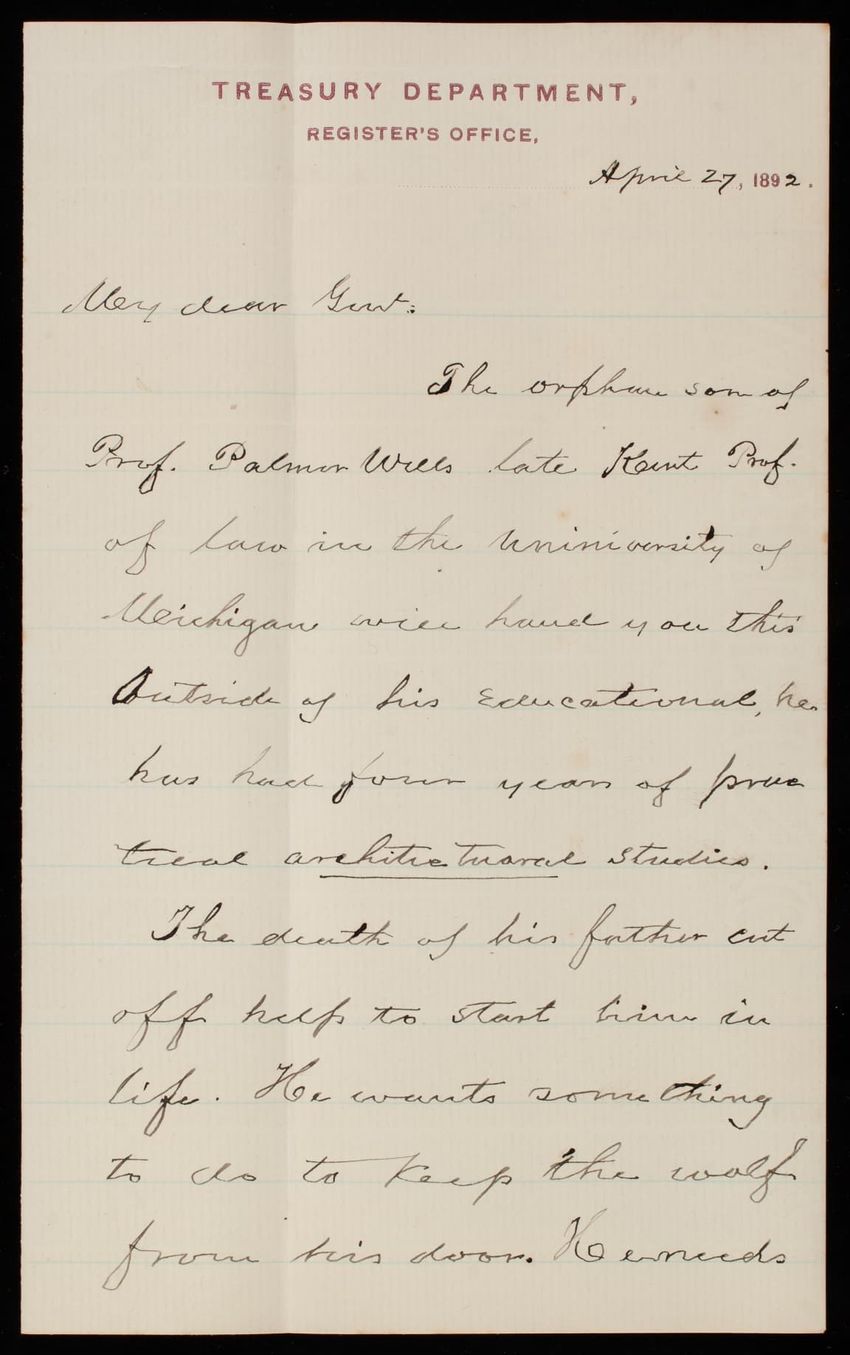 TREASURY DEPARTMENT,
REGISTER'S OFFICE,
April 27, 1892.
My dear Genl:
The orphan son of
Prof. Palmer Wills late Kent Prof.
of law in the Uniniversity of
Michigan will hand you this
Outside of his Educational, he
has had four years of prac
tical architectuaral studies.
The death of his father cut
off help to start him in
life. He wants something
to do to keep the wolf
from his door. He needs